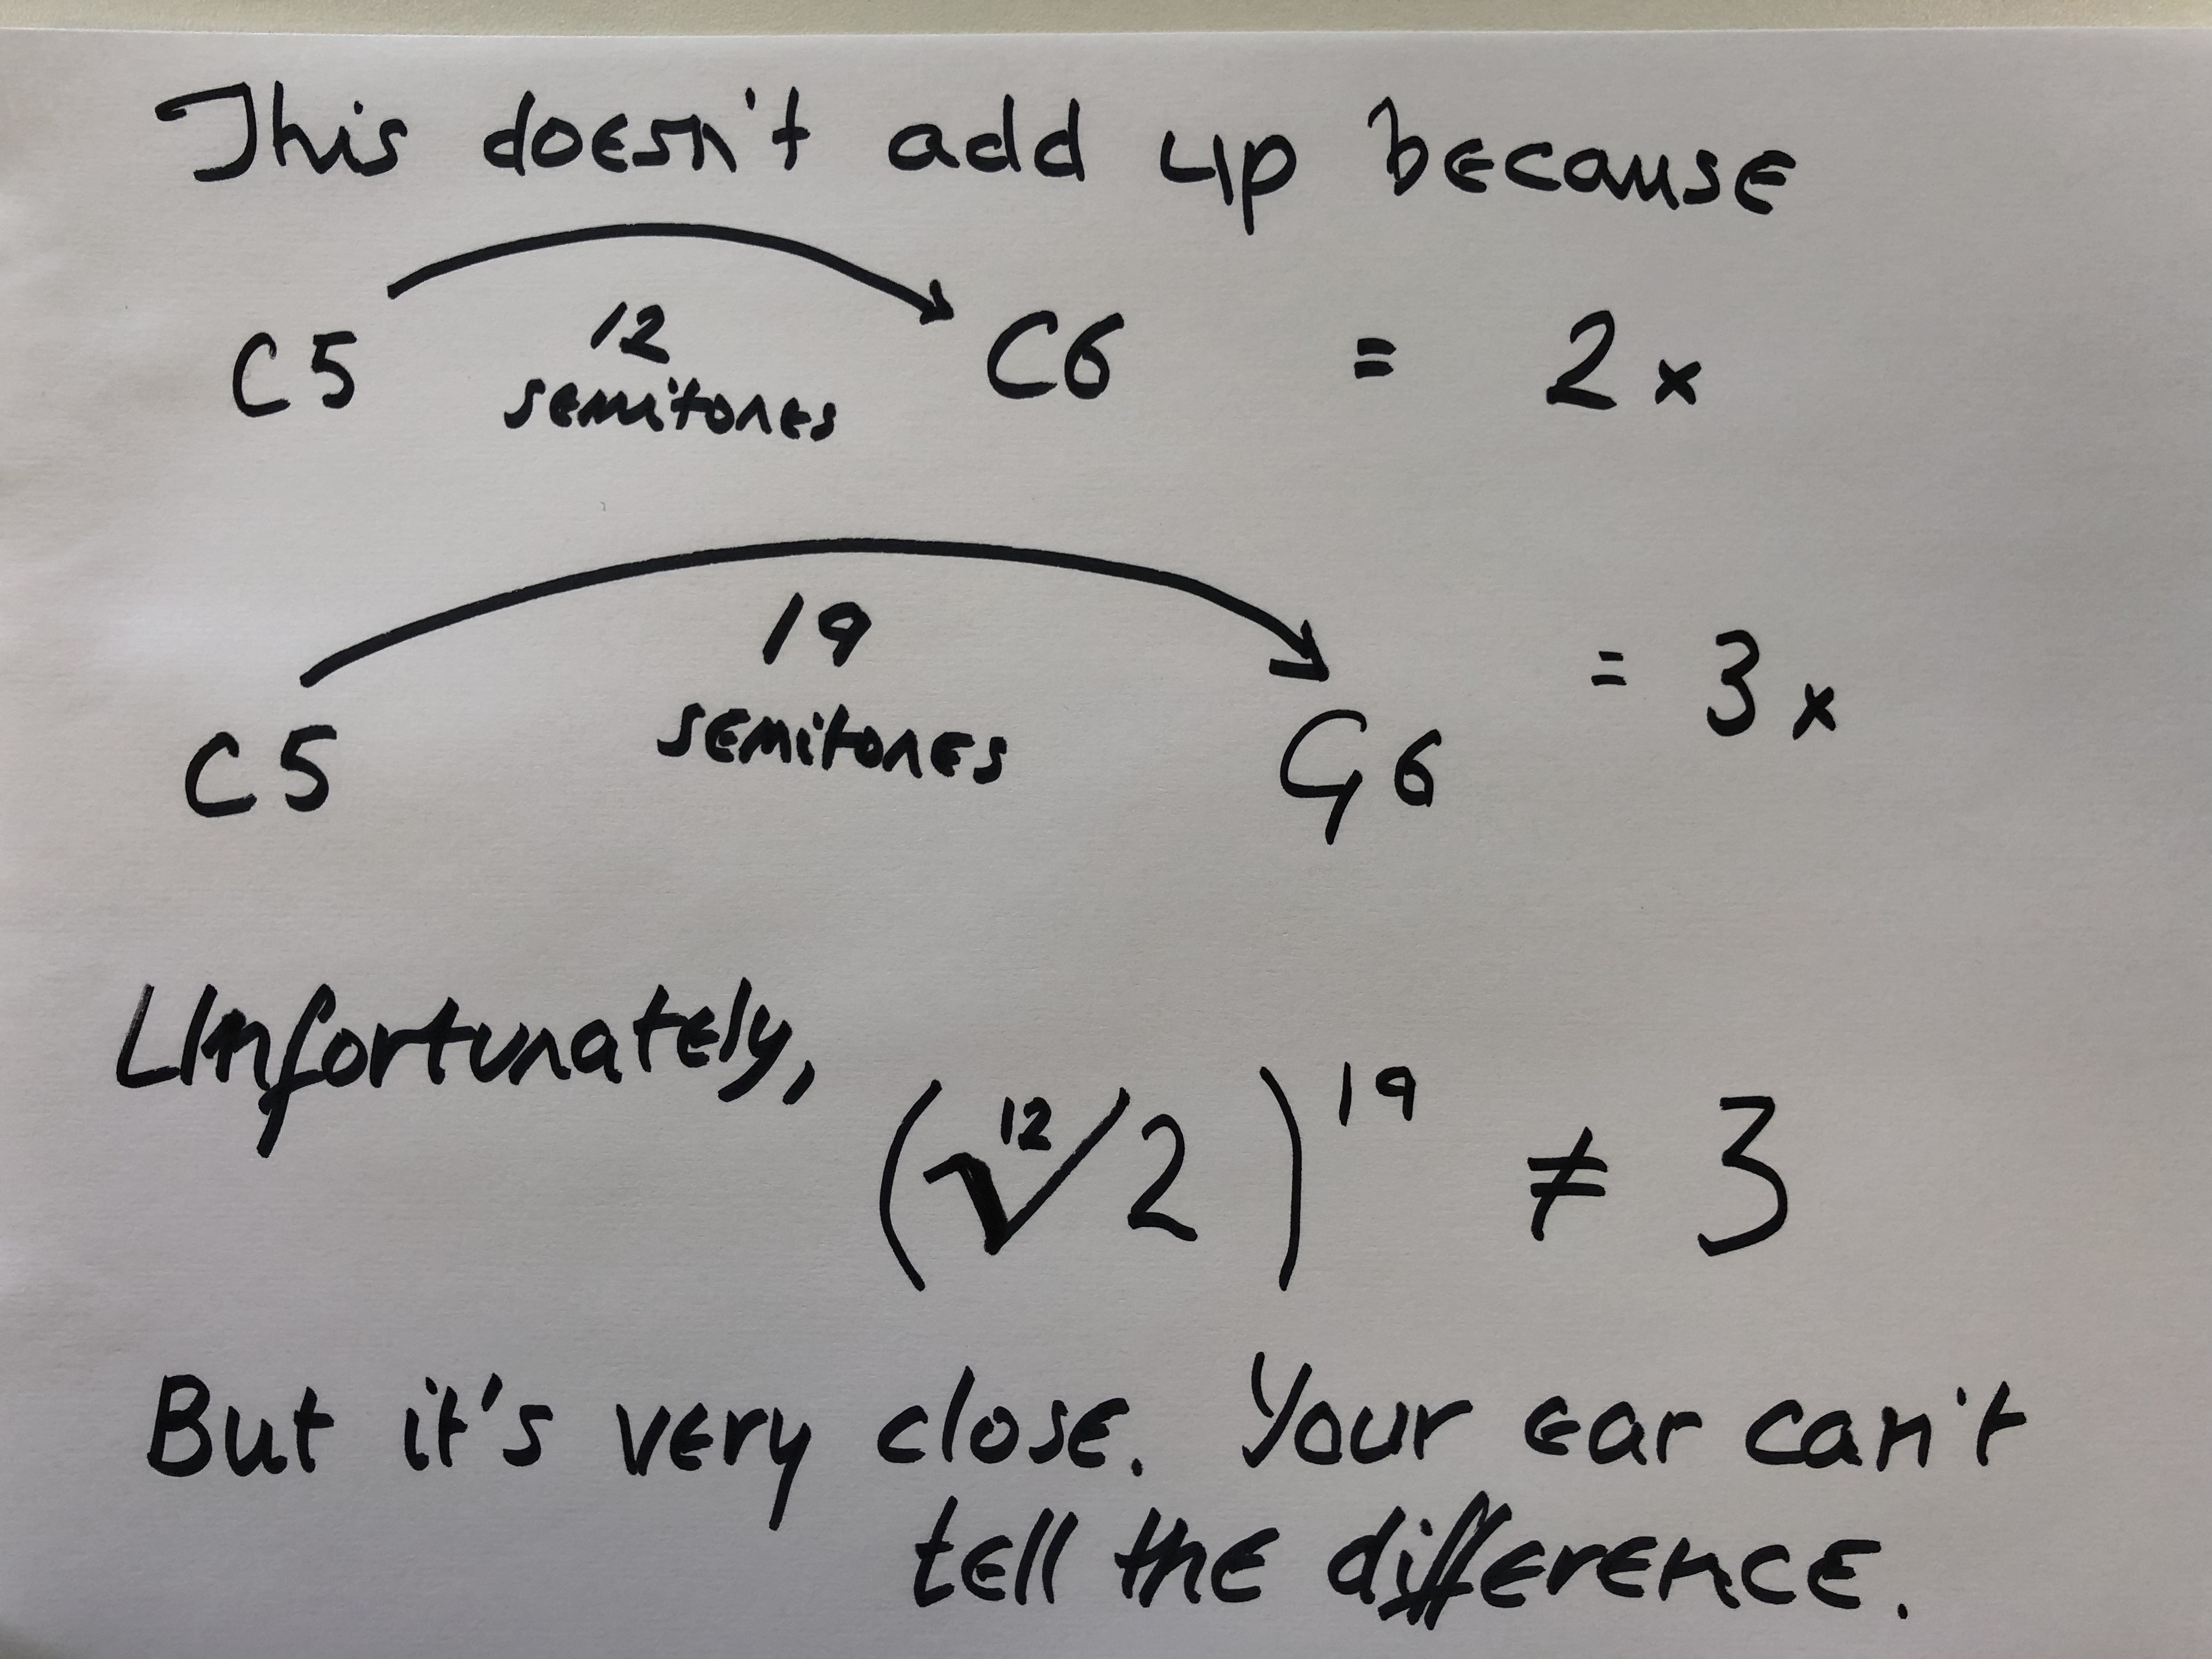 This doesn't add up because
C5 12 semitones C6 = 2x
C5 19 semitones G6 = 3x
Unfortunately,
(¹²√2)¹⁹ ≠ 3
But it's very close. Your ear can't
tell the difference.